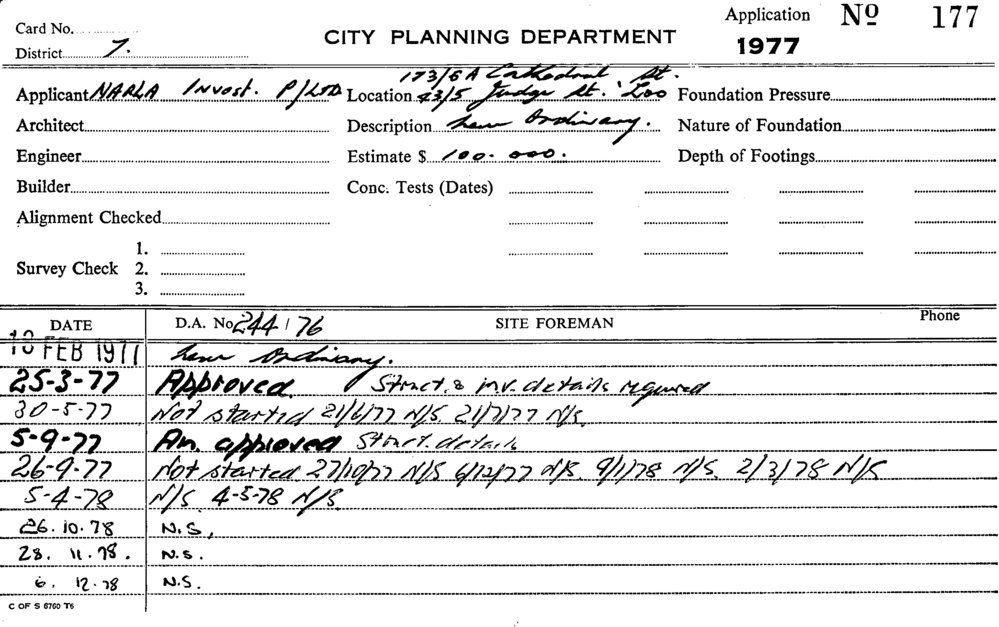 Card No.
Application No 177
District 7.
CITY PLANNING DEPARTMENT
1977
173/5A Cathedral St.
Applicant NARLA Invest. P/LTD Location 43/5 Judge St. 'Loo Foundation Pressure
Architect Description new Ordinary. Nature of Foundation
Engineer Estimate $ 100.000. Depth of Footings
Builder Conc. Tests (Dates)
Alignment Checked
1.
Survey Check 2.
3.
DATE D.A. No 244/76 SITE FOREMAN Phone
10 FEB 1977 new Ordinary.
25-3-77 Approved. Struct. & m.v. details required
30-5-77 Not started 21/6/77 N/S. 21/7/77 N/S.
5-9-77 Am. approved Struct. details
26-9-77 Not started 27/10/77 N/S 6/12/77 N/S. 9/1/78 N/S. 2/3/78 N/S
5-4-78 N/S. 4-5-78 N/S.
26.10.78 N.S,
28.11.78. N.S.
6.12.78 N.S.
C OF S 6760 T6